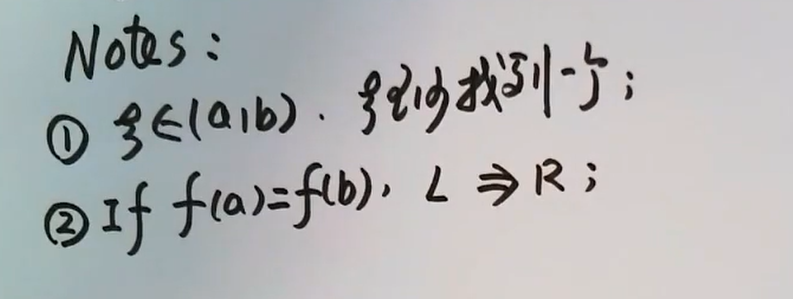 Notes:
① ξ∈(a,b). ξ至少找到一个;
② If f(a)=f(b), L ⇒ R;